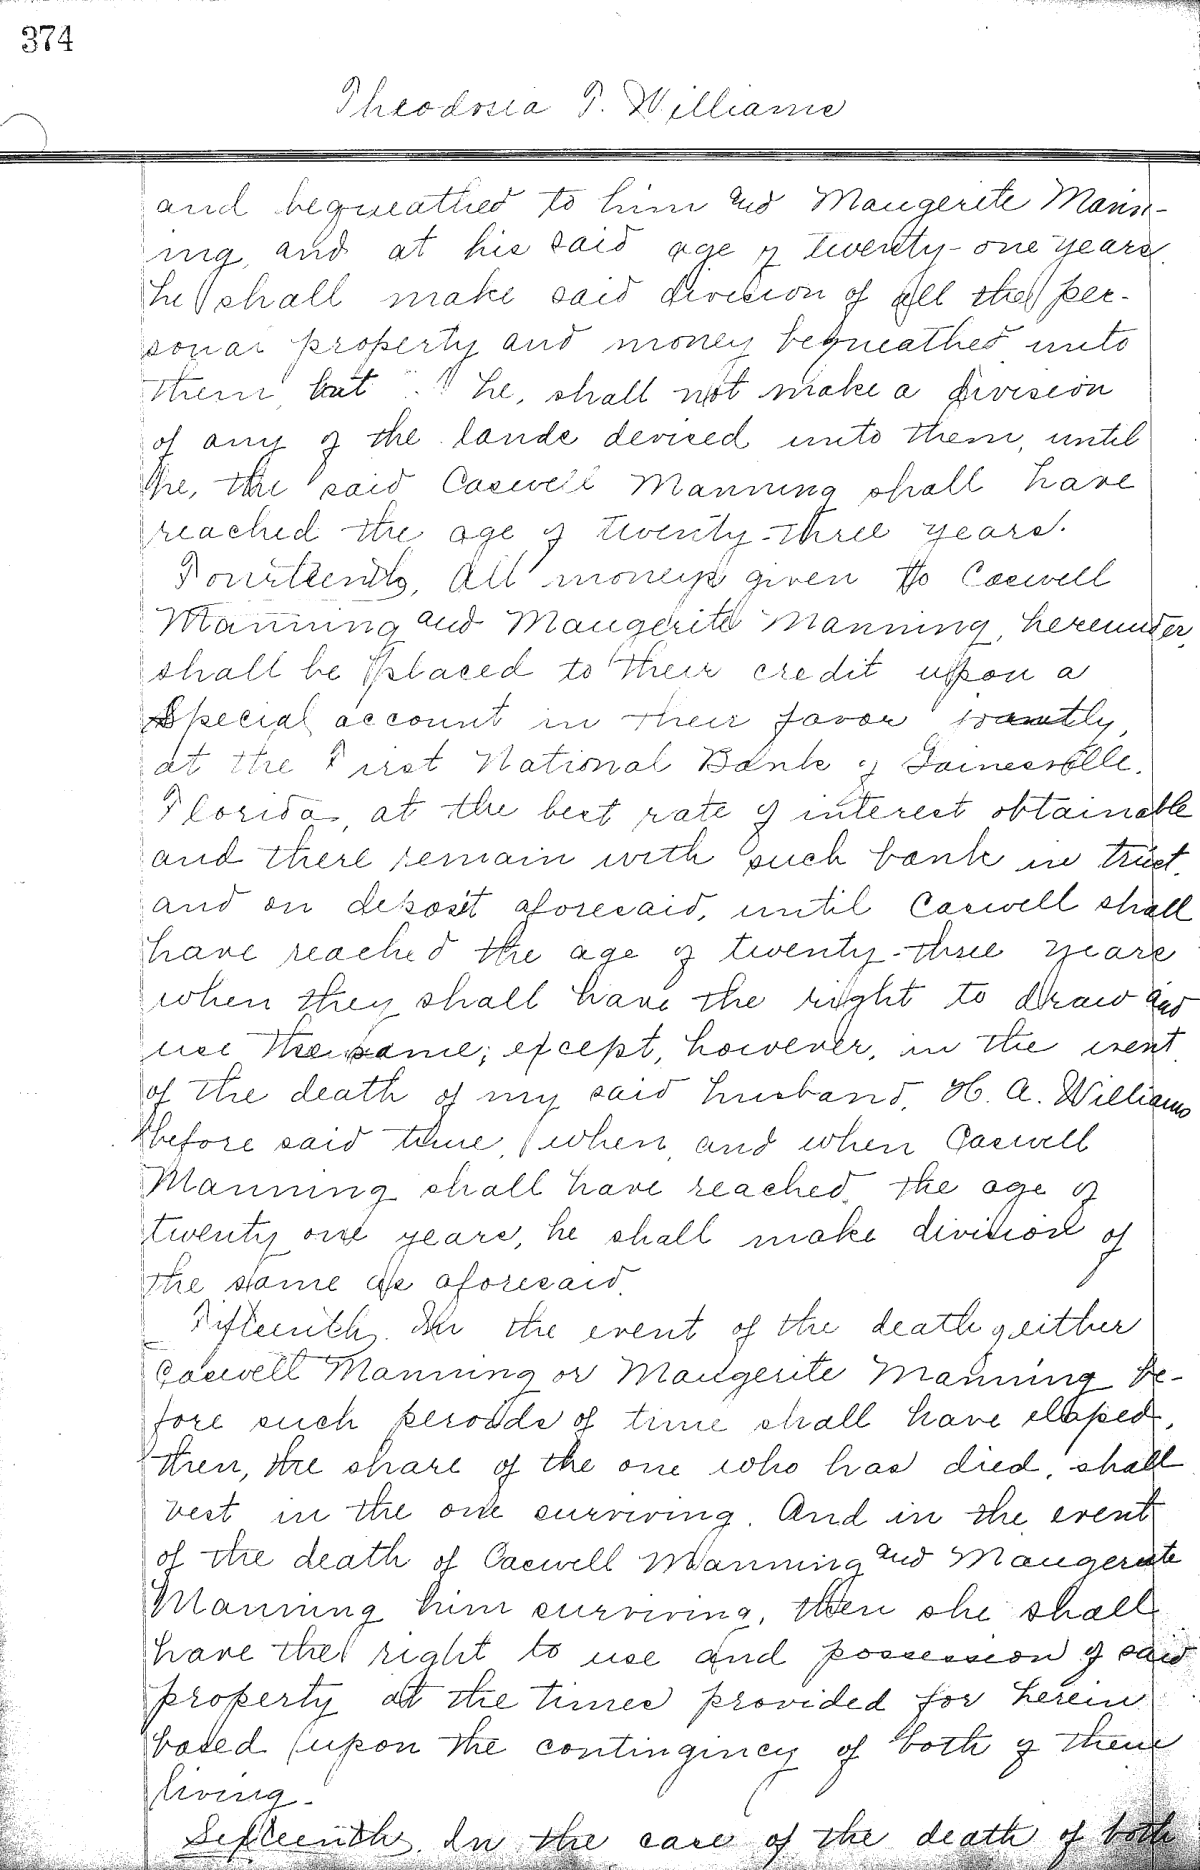 374
Theodosia T. Williams
and bequeathed to him and Maugerite Mann-
ing, and at his said age of twenty-one years.
he shall make said division of all the per-
sonal property and money bequeathed unto
them, but he, shall not make a division
of any of the lands devised unto them, until
he, the said Caswell Manning shall have
reached the age of twenty-three years.
Fourteenth, All moneys given to Caswell
Manning and Maugerite Manning, hereunder,
shall be placed to their credit upon a
Special account in their favor
at the First National Bank of Gainesville.
Florida, at the best rate of interest obtainable
and there remain with such bank in trust.
and on deposit aforesaid, until Caswell shall
have reached the age of twenty-three years
when they shall have the right to draw and
use the same; except, however, in the event
of the death of my said husband, H. A. Williams
before said time, when, and when Caswell
Manning shall have reached the age of
twenty one years, he shall make division of
the same as aforesaid.
Fifteenth. In the event of the death of either
Caswell Manning or Maugerite Manning be-
fore such periods of time shall have elapsed,
then, the share of the one who has died, shall
vest in the one surviving. And in the event
of the death of Caswell Manning and Maugerite
Manning him surviving, then she shall
have the right to use and possession of said
property at the times provided for herein
based upon the contingency of both of them
living.
Sixteenth. In the case of the death of both